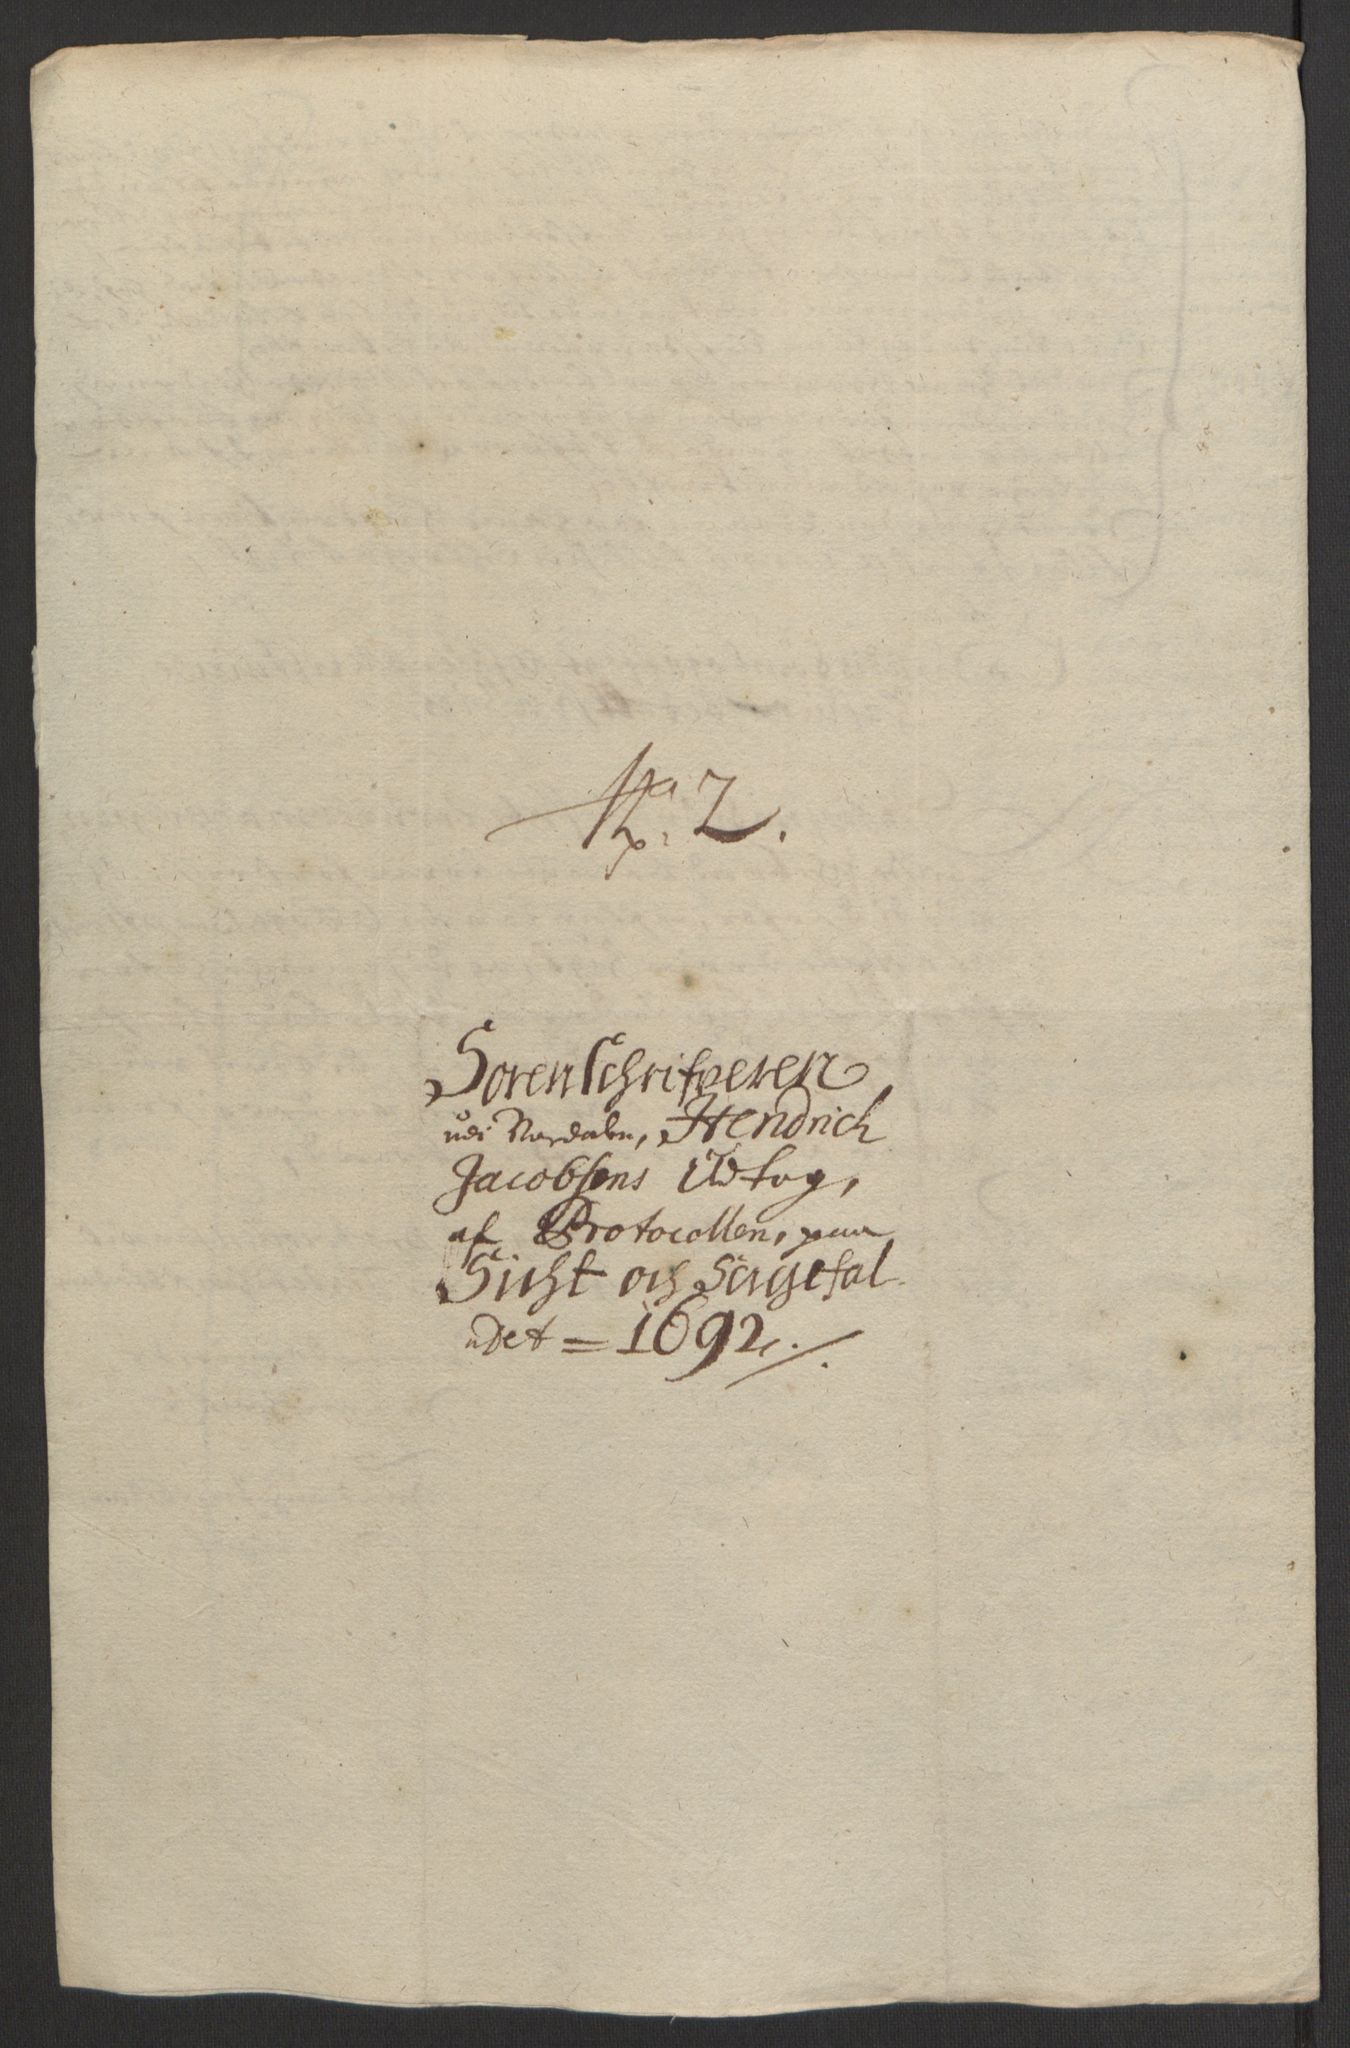 No. 2.
Sorenschrifveren
udi Nordalen, Hendrich
Jacobsens Udtog,
af Protocollen, paa
Sicht och Sagefal
udet = 1692.